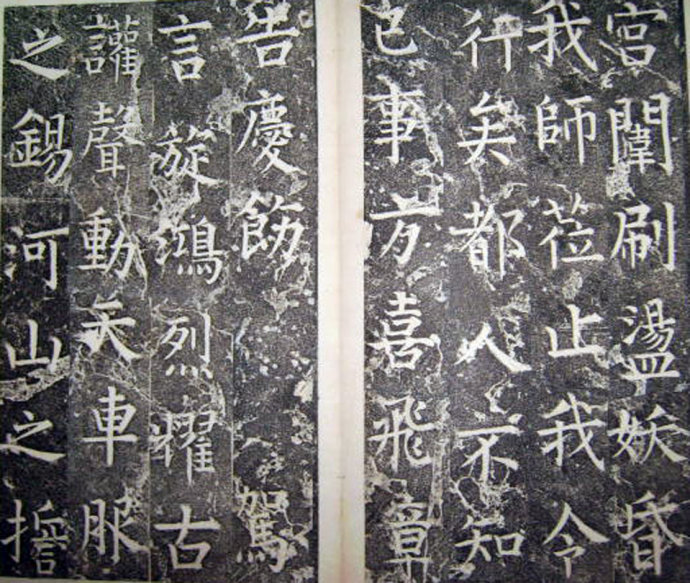 宮闈刷盪妖昏
我師莅止我令
行矣都人不知
已事方喜飛章
告慶飭駕
言旋鴻烈燿古
讙聲動天車服
之錫河山之誓